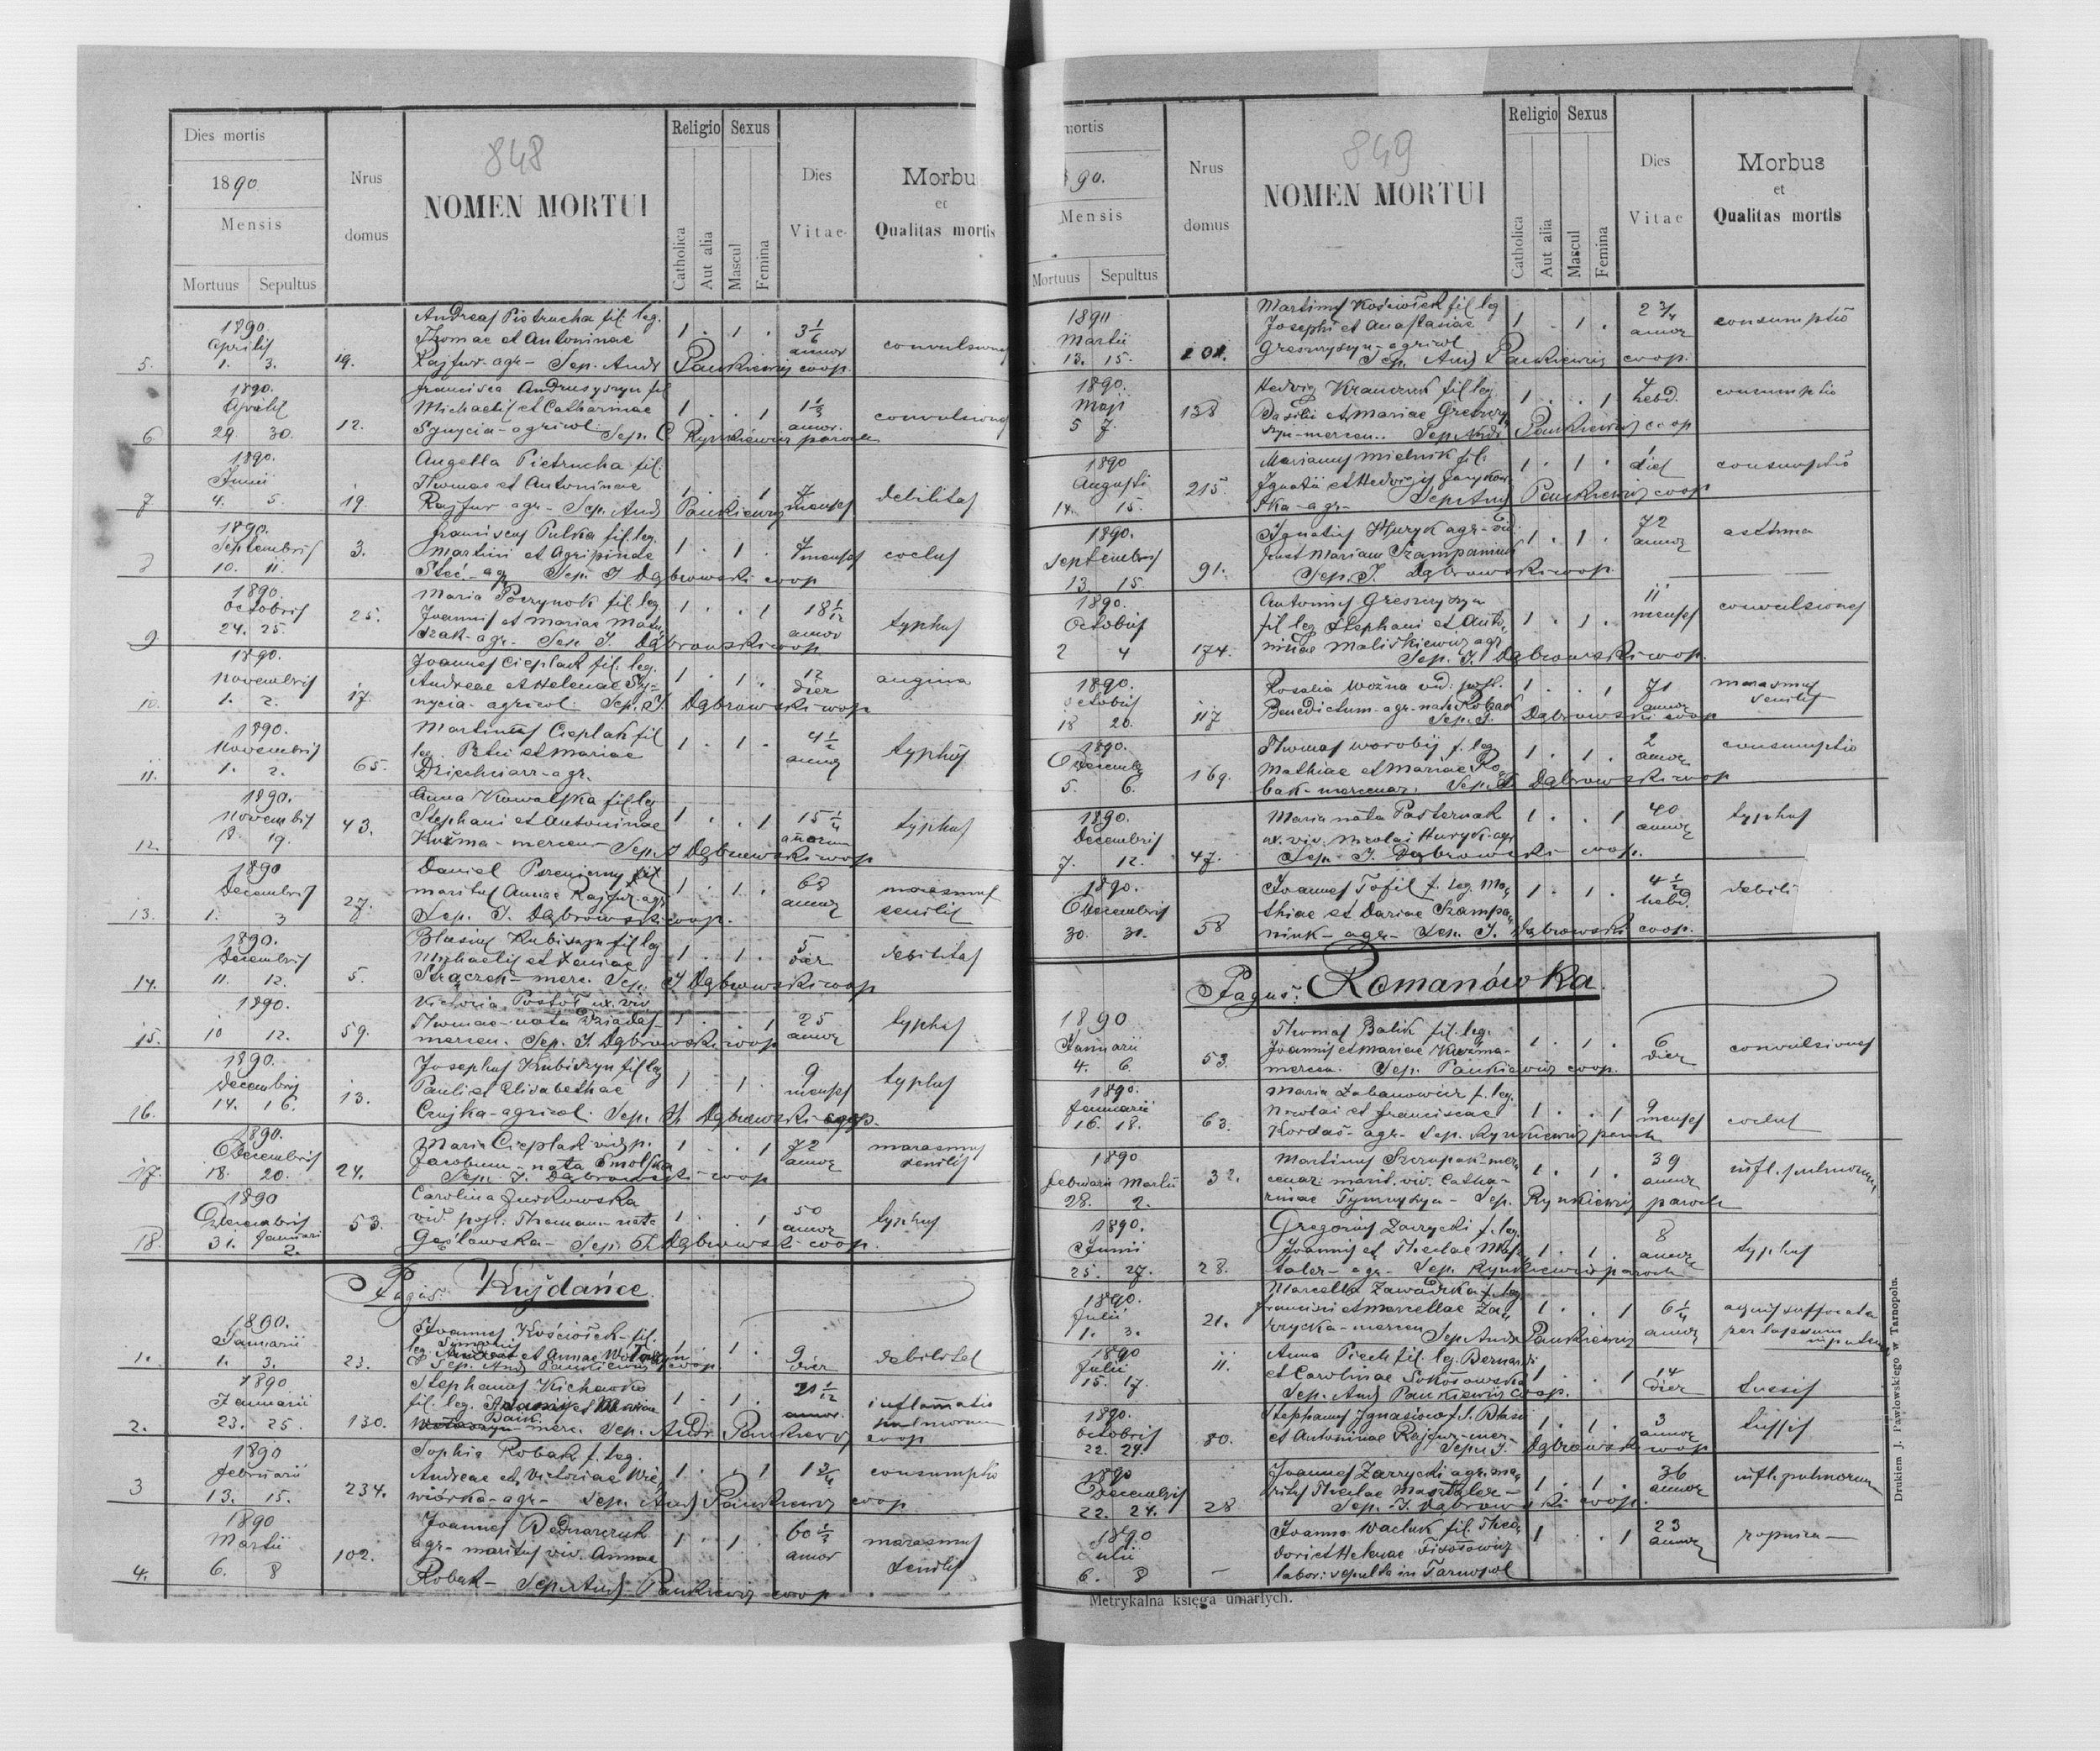 848
Dies mortis
1890
Mensis
Mortuus Sepultus
Nrus domus
NOMEN MORTUI
Religio Sexus
Catholica
Aut alia
Mascul
Femina
Dies Vitae
Morbu
et
Qualitas mortis
5. 1890. Aprilis 1. 3. 19.
Andreas Pietrucha fil. leg.
Thomae et Antoninae
Rajfur - agr - Sep. Andr Pankiewicz coop
1 . 1 . 3 1/6 annor convulsiones
6 1890. Aprilis 29. 30. 12.
Francisca Andrusyszyn fil
Michaelis et Catharinae
Synycia - agricol. Sep. C Rynkiewicz paroch
1 . . 1 1 1/2 annor. convulsiones
7 1890. Junii 4. 5. 19.
Angella Pietrucha fil.
Thomae et Antoninae
Rajfur agr - Sep. And Pankiewicz
1 . . 1 7 menses debilitas
8 1890. Septembris 10. 11. 3.
Franciscus Pulka fil. leg.
Martini et Agripinae
Steć - agr Sep. J Dąbrowski coop
1 . 1 . 7 menses coclus
9 1890. Octobris 24. 25. 25.
Maria Poczynok fil. leg.
Joannis et Mariae
agr - Sep. J. Dąbrowski coop
1 . . 1 18 1/12 annor typhus
10. 1890. Novembris 1. 2. 17.
Joannes Cieplak fil. leg.
Andreae et Helenae Sy-
nycia - agricol. Sep. J. Dąbrowski coop
1 . 1 . 12 dier angina
11. 1890. Novembris 1. 2. 65.
Martinus Cieplak fil
leg. Petri et Mariae
Dziechciarz - agr.
1 . 1 . 4 1/2 annor typhus
12. 1890. Novembris 18. 19. 43.
Anna Kowalska fil leg
Stephani et Antoninae
Kuźma - mercen - Sep. J Dąbrowski coop
1 . . 1 15 1/4 annorum typhus
13. 1890 Decembris 1. 3 27.
Daniel
maritus Annae Rajfur agr
Sep. J. Dąbrowski coop.
1 . 1 . 68 annor marasmus senilis
14. 1890. Decembris 11. 12. 5.
Blasius Kubiszyn fil leg
Michaelis et Xeniae
Strączek - merc. Sep. J Dąbrowski coop
1 . 1 . 5 dier debilitas
15. 1890. 10 12. 59.
Victoria Postoł ux. viv
Thomae - nata Dziadas -
mercen. Sep. J. Dąbrowski coop
1 . . 1 25 annor typhus
16. 1890. Decembris 14. 16. 13.
Josephus Kubiszyn fil leg
Pauli et Elisabethae
Czujka - agricol. Sep. J. Dąbrowski coop.
1 . 1 . 9 menses typhus
17. 1890. Decembris 18. 20. 24.
Maria Cieplak vid p.
Jacobum - nata Smolska
Sep. J. Dąbrowski - coop
1 . . 1 72 annor marasmus senilis
18. 1890 Decembris 31. Januari 2. 53.
Carolina Jurkowska
vid post. Thomam - nata
Gęsławska - Sep. J. Dąbrowski coop.
1 . . 1 50 annor typhus
Pagus: Kujdańce.
1. 1890. Januarii 1. 3. 23.
Joannes Kościołek - fil.
leg. et Annae
Sep. And Pankiewicz coop
1 . 1 . 9 dier debilitas
2. 1890 Januarii 23. 25. 130.
Stephanus
fil. leg.
merc. Sep. Andr Pankiewicz coop
1 . 1 . 21 1/12 annor. inflammatio pulmorum
3 1890 Februarii 13. 15. 234.
Sophia Robak f. leg.
Andreae et Victoriae Wie
wiórka - agr - Sep. And Pankiewicz coop
1 . . 1 1 3/4 consumptio
4. 1890 Martii 6. 8 102.
Joannes Bednarczuk
agr - maritus viv. Annae
Robak - Sep. And Pankiewicz coop
1 . 1 . 60 1/2 annor marasmus senilis
849
mortis
890.
Mensis
Mortuus Sepultus
Nrus domus
NOMEN MORTUI
Religio Sexus
Catholica
Aut alia
Mascul
Femina
Dies Vitae
Morbus
et
Qualitas mortis
Martii 13. 15. 201.
Martinus Kościołek fil leg
Josephi et Anastasiae
Greszczyszyn - agricol
Sep. And Pankiewicz coop.
1 . 1 . 2 3/4 annor consumptio
1890. Maji 5 7. 138
Hedvig Krawczuk fil leg.
Basilii et Mariae Greszczy
szyn - mercen.. Sep. And Pankiewicz coop
1 . . 1 4 hebd. consumptio
1890 Augusti 14. 15. 215.
Marianus Mielnik fil.
Ignatii et Hedvigis
ska - agr - Sep. And Pankiewicz coop
1 . 1 . 1 diei consumptio
1890. Septembris 13. 15. 91.
Ignatius Huryk agr - vid.
post Mariam Szampaniuk
Sep. J. Dąbrowski coop.
1 . 1 . 72 annor asthma
1890. Octobris 2 4 174.
Antonius Greszczyszyn
fil leg Stephani et Anto-
ninae Maliskiewicz agr
Sep. J. Dąbrowski coop.
1 . 1 . 11 menses convulsiones
1890. Octobris 18 20. 117
Rosalia Woźna vid. post.
Benedictum - agr - nata Robak
Sep. J. Dąbrowski coop
1 . . 1 71 annor marasmus senilis
1890. Decembr 5. 6. 169.
Thomas Worobij f. leg
Mathiae et Mariae Ro-
bak - mercenar. Sep. J. Dąbrowski coop
1 . 1 . 2 annor consumptio
1890. Decembris 7. 12. 47.
Maria nata Pasternak
ux. viv. Nicolai Huryk - agr
Sep. J. Dąbrowski coop.
1 . . 1 40 annor typhus
1890. Decembris 30. 31. 58
Joannes Tofil f. leg. Ma-
thiae et Dariae Szampa-
niuk - agr - Sep. J. Dąbrowski coop.
1 . 1 . 4 1/2 hebd. debili
Pagus: Romanówka.
1890 Januarii 4. 6. 53.
Thomas Balik fil. leg.
Joannis et Mariae Kuźma -
mercen. Sep. Pankiewicz coop.
1 . 1 . 6 dier convulsiones
1890. Januarii 16. 18. 63.
Maria Labanowicz f. leg.
Nicolai et Franciscae
Kordaś - agr - Sep. Rynkiewicz paroch
1 . . 1 9 menses coclus
1890 Februarii Martii 28. 2. 32.
Martinus Szczupak - mer
cenar. marit. viv. Catha-
rinae Tymczyszyn - Sep. Rynkiewicz paroch
1 . 1 . 39 annor infl. pulmorum
1890. Junii 25. 27. 28.
Gregorius Zarzycki f. leg.
Joannis et Theclae Masz-
taler - agr - Sep. Rynkiewicz paroch
1 . 1 . 8 annor typhus
1890. Julii 1. 3. 21.
Marcella Zawadzka f. leg
Francisci et Marcellae Za-
rzycka - mercen Sep. Andr Pankiewicz
1 . . 1 6 1/4 annor aquis suffocata per lapsum in puteum
1890 Julii 15. 17. 11.
Anna Piech fil. leg. Bernardi
et Carolinae Sokołowska
Sep. And Pankiewicz coop.
1 . . 1 14 dier tussis
1890. Octobris 22. 24. 80.
Stephanus Ignasiów f. l. Blasii
et Antoninae Rajfur - mer -
Sep. J. Dąbrowski coop
1 . 1 . 3 annor tussis
1890 Decembris 22. 24. 28
Joannes Zarzycki agr. ma-
ritus Theclae Masztaler -
Sep. J. Dąbrowski coop.
1 . 1 . 36 annor infl. pulmorum
1890 Julii 6. 8 -
Joanna Wacluk fil. Theo-
dori et Helenae
labor: sepulta in Tarnopol
1 . . 1 23 annor
Metrykalna księga umarłych.
Drukiem J. Pawłowskiego w Tarnopolu.